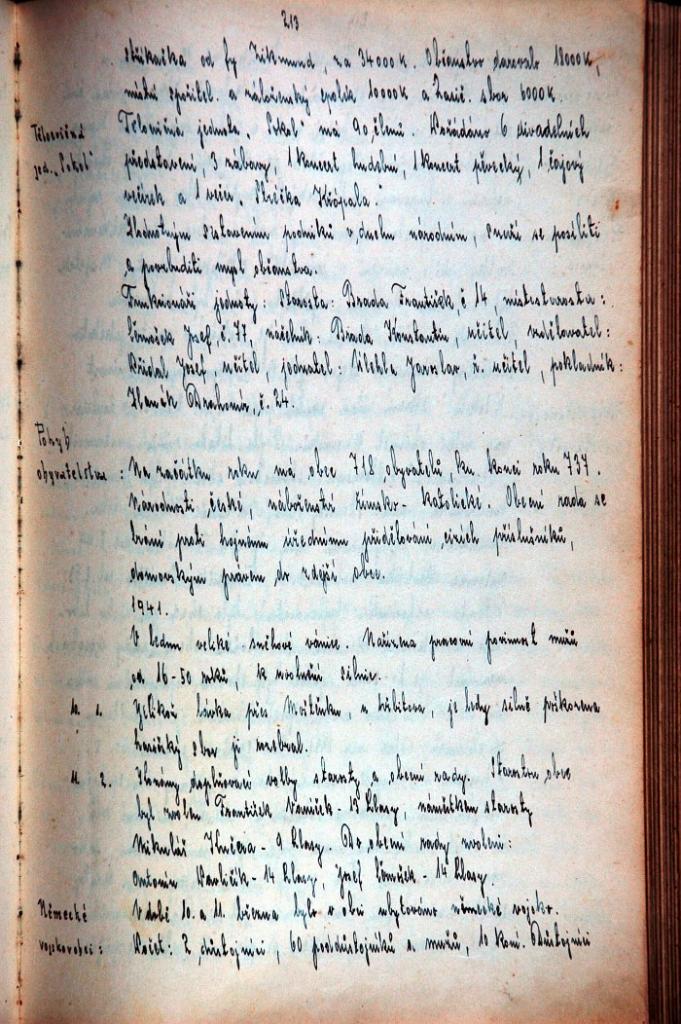 213
stříkačka od fy Zikmund, za 34000 K. Občanstvo darovalo 18000 K,
místní spořitel. a záloženský spolek 10000 K a Hasič. sbor 6000 K.
Tělocvičná
jed. „Sokol"
Tělocvičná jednota „Sokol" má 90 členů. Pořádáno 6 divadelních
představení, 3 zábavy, 1 koncert hudební, 1 koncert pěvecký, 1 čajový
večírek a 1 večer
Hodnotným sestavením podniků v duchu národním, snaží se posíliti
a povzbuditi mysl občanstva.
Funkcionáři jednoty: Starosta: Brada František, č 14, místostarosta:
Josef, č. 77, náčelník: Brada Konstantin, učitel, vzdělavatel:
Josef učitel, jednatel: Jaroslav, ř. učitel, pokladník:
č. 24.
Pohyb
obyvatelstva:
Na začátku roku má obec 718 obyvatelů, ku konci roku 737.
Národnosti české, náboženství římsko-katolické. Obecní rada se
brání proti hojnému úřednímu přidělování cizích příslušníků,
domovským právem do zdejší obce.
1941.
V lednu veliké sněhové vánice. Nařízena pracovní povinnost mužů
od 16-50 roků, k uvolnění silnic.
4. 1.
Jelikož lávka přes je ledy silně poškozena
4. 2.
Konány doplňovací volby starosty a obecní rady. Starostou obce
byl zvolen František Vaníček - 13 hlasy náměstkem starosty
Mikuláš Kučera - 9 hlasy. Do obecní rady zvoleni:
Antonín Havlíček - 14 hlasy, Josef - 14 hlasy.
Německé
vojsko v obci:
V době 10. a 11. března bylo v obci ubytováno německé vojsko.
Počet: 2 důstojníci, 60 poddůstojníků a mužů, 10 koní. Důstojníci